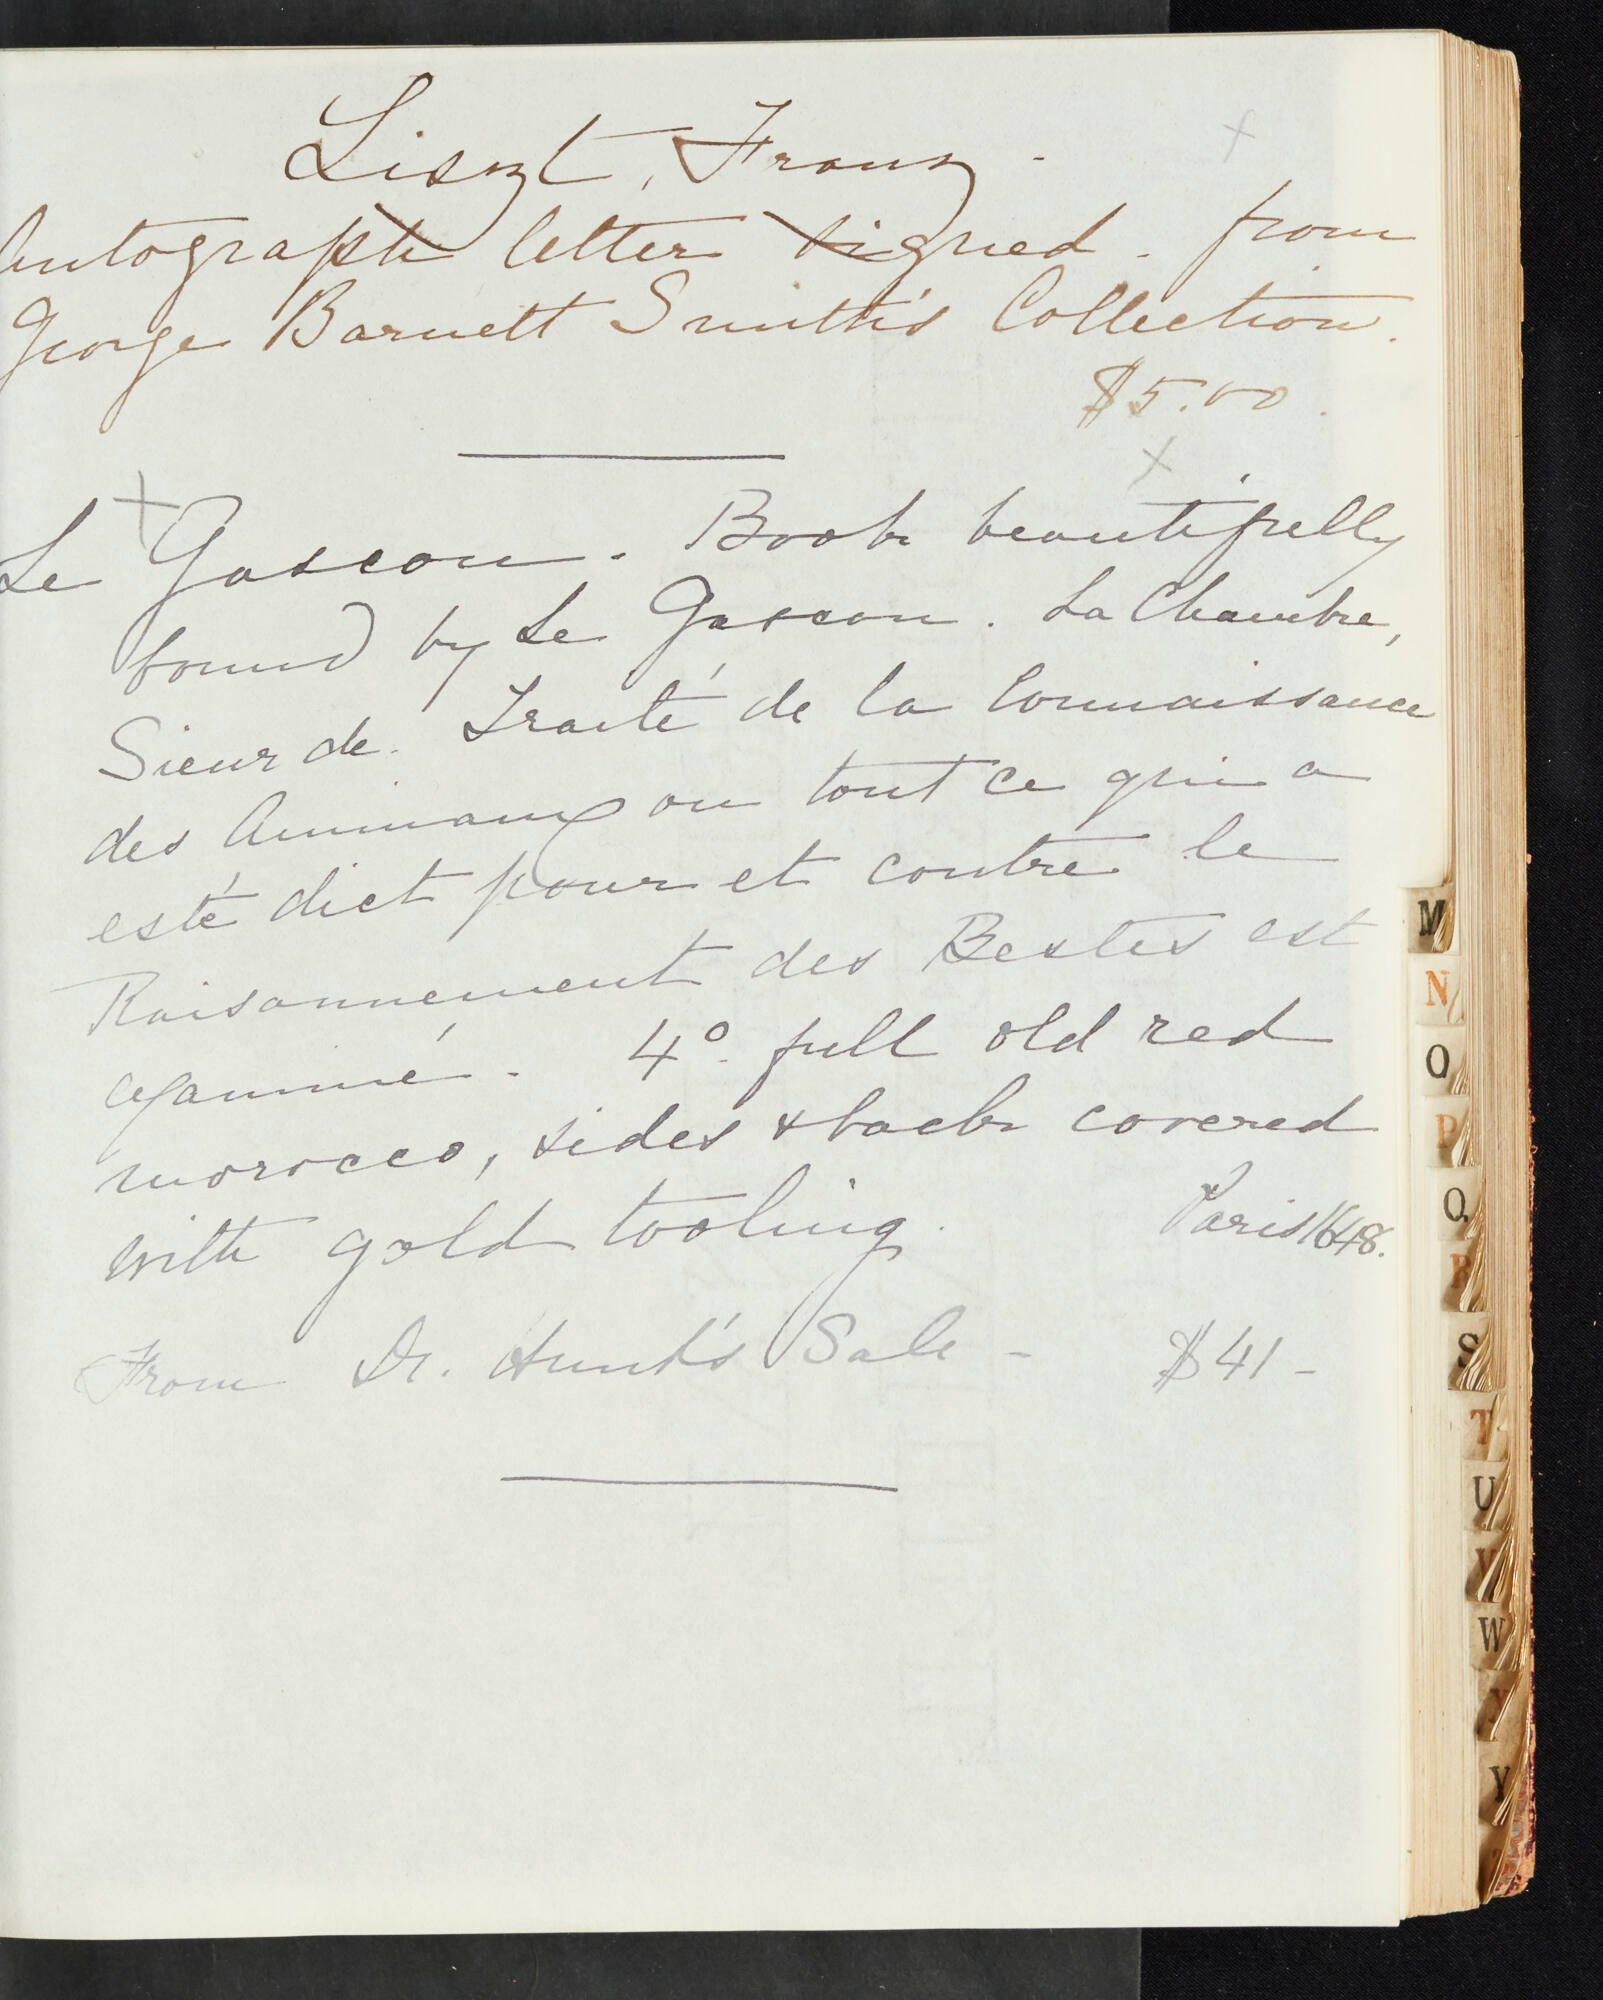 Liszt, Franz -
Autograph letter signed. from
George Barnett Smith's Collection.
$5.00.
Le Gascon. Book beautifully
bound by Le Gascon. La Chambre,
Sieur de. Traité de la Connaissance
des Animaux ou tout ce qui a
esté dict pour et contre le
Raisonnement des Bestes est
examiné. 4º. full old red
morocco, sides & back covered
with gold tooling. Paris 1648.
From Dr. Hunt's Sale - $41 -
M
N
O
P
Q
R
S
T
U
V
W
Y